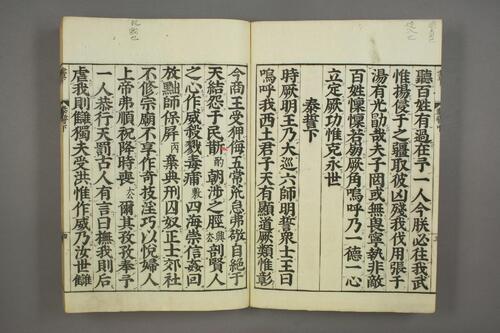 聽百姓有過在予一人今朕必往我武
惟揚侵于之疆取彼凶殘我伐用張于
湯有光勖哉夫子罔或無畏寧執非敵
百姓懍懍若崩厥角嗚呼乃一德一心
立定厥功惟克永世
泰誓下
時厥明王乃大巡六師明誓衆士王曰
嗚呼我西土君子天有顯道厥類惟彰
今商王受狎侮五常荒怠弗敬自絶于
天結怨于民斮酌朝涉之脛剖賢人
之心作威殺戮毒痡敷四海崇信姦回
放黜師保屏丙棄典刑囚奴正士郊社
不修宗廟不享作奇技淫巧以悅婦人
上帝弗順祝降時喪去爾其孜孜奉予
一人恭行天罰古人有言曰撫我則后
虐我則讎獨夫受洪惟作威乃汝世讎